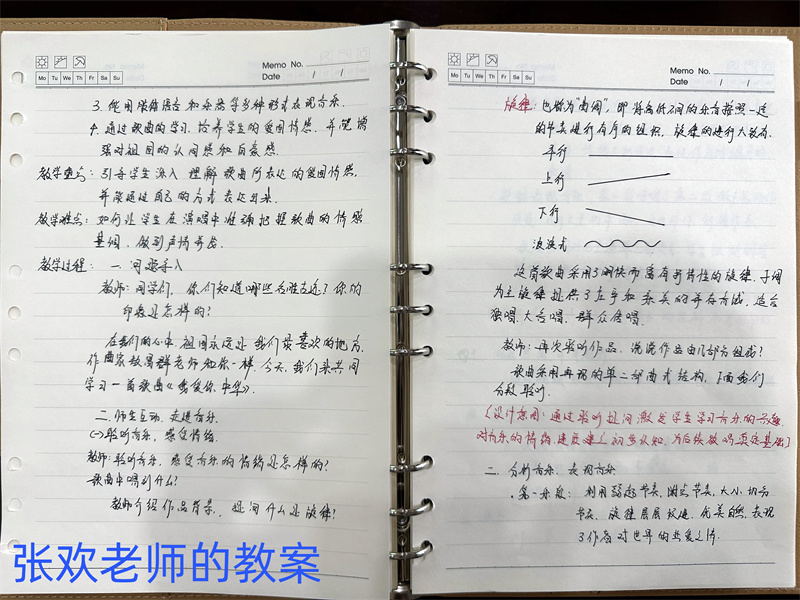 Memo No.
Date / /
Mo Tu We Th Fr Sa Su
3. 使用肢体语言和乐器等多种形式表现音乐.
4. 通过歌曲的学习, 培养学生的爱国情感, 并能增
强对祖国的认同感和自豪感.
教学重点: 引导学生深入理解歌曲所表达的爱国情感,
并能通过自己的方式表达出来.
教学难点: 如何让学生在演唱中准确把握歌曲的情感
基调, 做到声情并茂.
教学过程: 一 问题导入
教师: 同学们, 你们知道哪些名胜古迹? 你的
印象是怎样的?
在我们的心中祖国永远是我们最喜欢的地方,
作曲家 群老师和你一样, 今天, 我们来共同
学习一首歌曲《我爱你, 中华》.
二. 师生互动, 走进音乐.
(一) 聆听音乐, 感受情绪.
教师: 聆听音乐, 感受音乐的情绪是怎样的?
歌曲中唱到什么?
教师介绍作品背景, 提问什么是旋律?
张欢老师的教案
Memo No.
Date / /
Mo Tu We Th Fr Sa Su
旋律: 也称为"曲调", 即将高低不同的乐音按照一定
的节奏进行有序的组织, 旋律的进行大致有.
平行
上行
下行
波浪式
这首歌曲采用了明快而富有抒情性的旋律, 于调
为主旋律提供了 和 的并存 , 适合
独唱、大合唱、群众传唱.
教师: 再次聆听作品, 说说作品由几部分组成?
歌曲采用再现的单二部曲式结构, 下面我们
分段聆听.
(设计意图: 通过聆听提问激发学生学习音乐的兴趣,
对音乐的情绪、速度建立初步认知, 为后续教唱奠定基础]
三. 分析音乐, 表现音乐
·第一乐段: 利用弱起节奏, 附点节奏, 大、小切分
节奏, 旋律层层递进, 优美自然, 表现
了作者对世界的热爱之情.